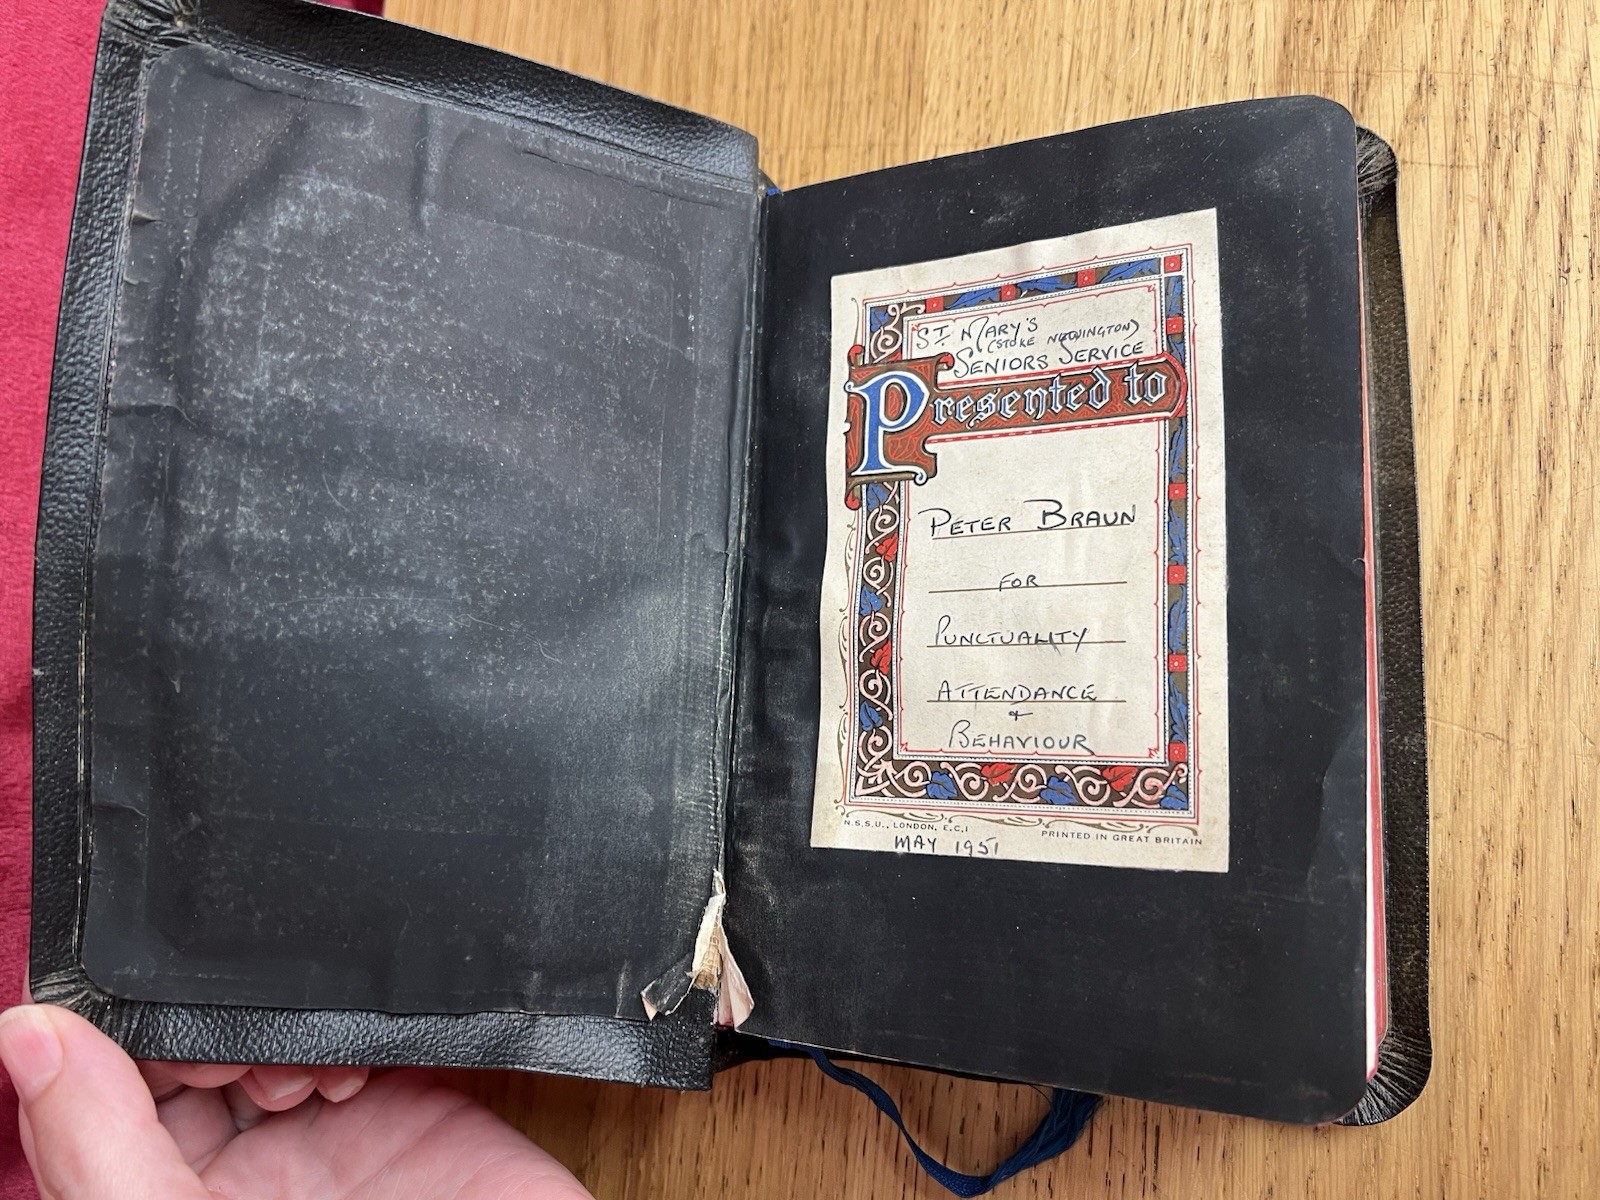 ST. MARY'S
(STOKE NEWINGTON)
SENIORS SERVICE
Presented to
PETER BRAUN
FOR
PUNCTUALITY
ATTENDANCE
+
BEHAVIOUR
N.S.S.U., LONDON, E.C.1
PRINTED IN GREAT BRITAIN
MAY 1951